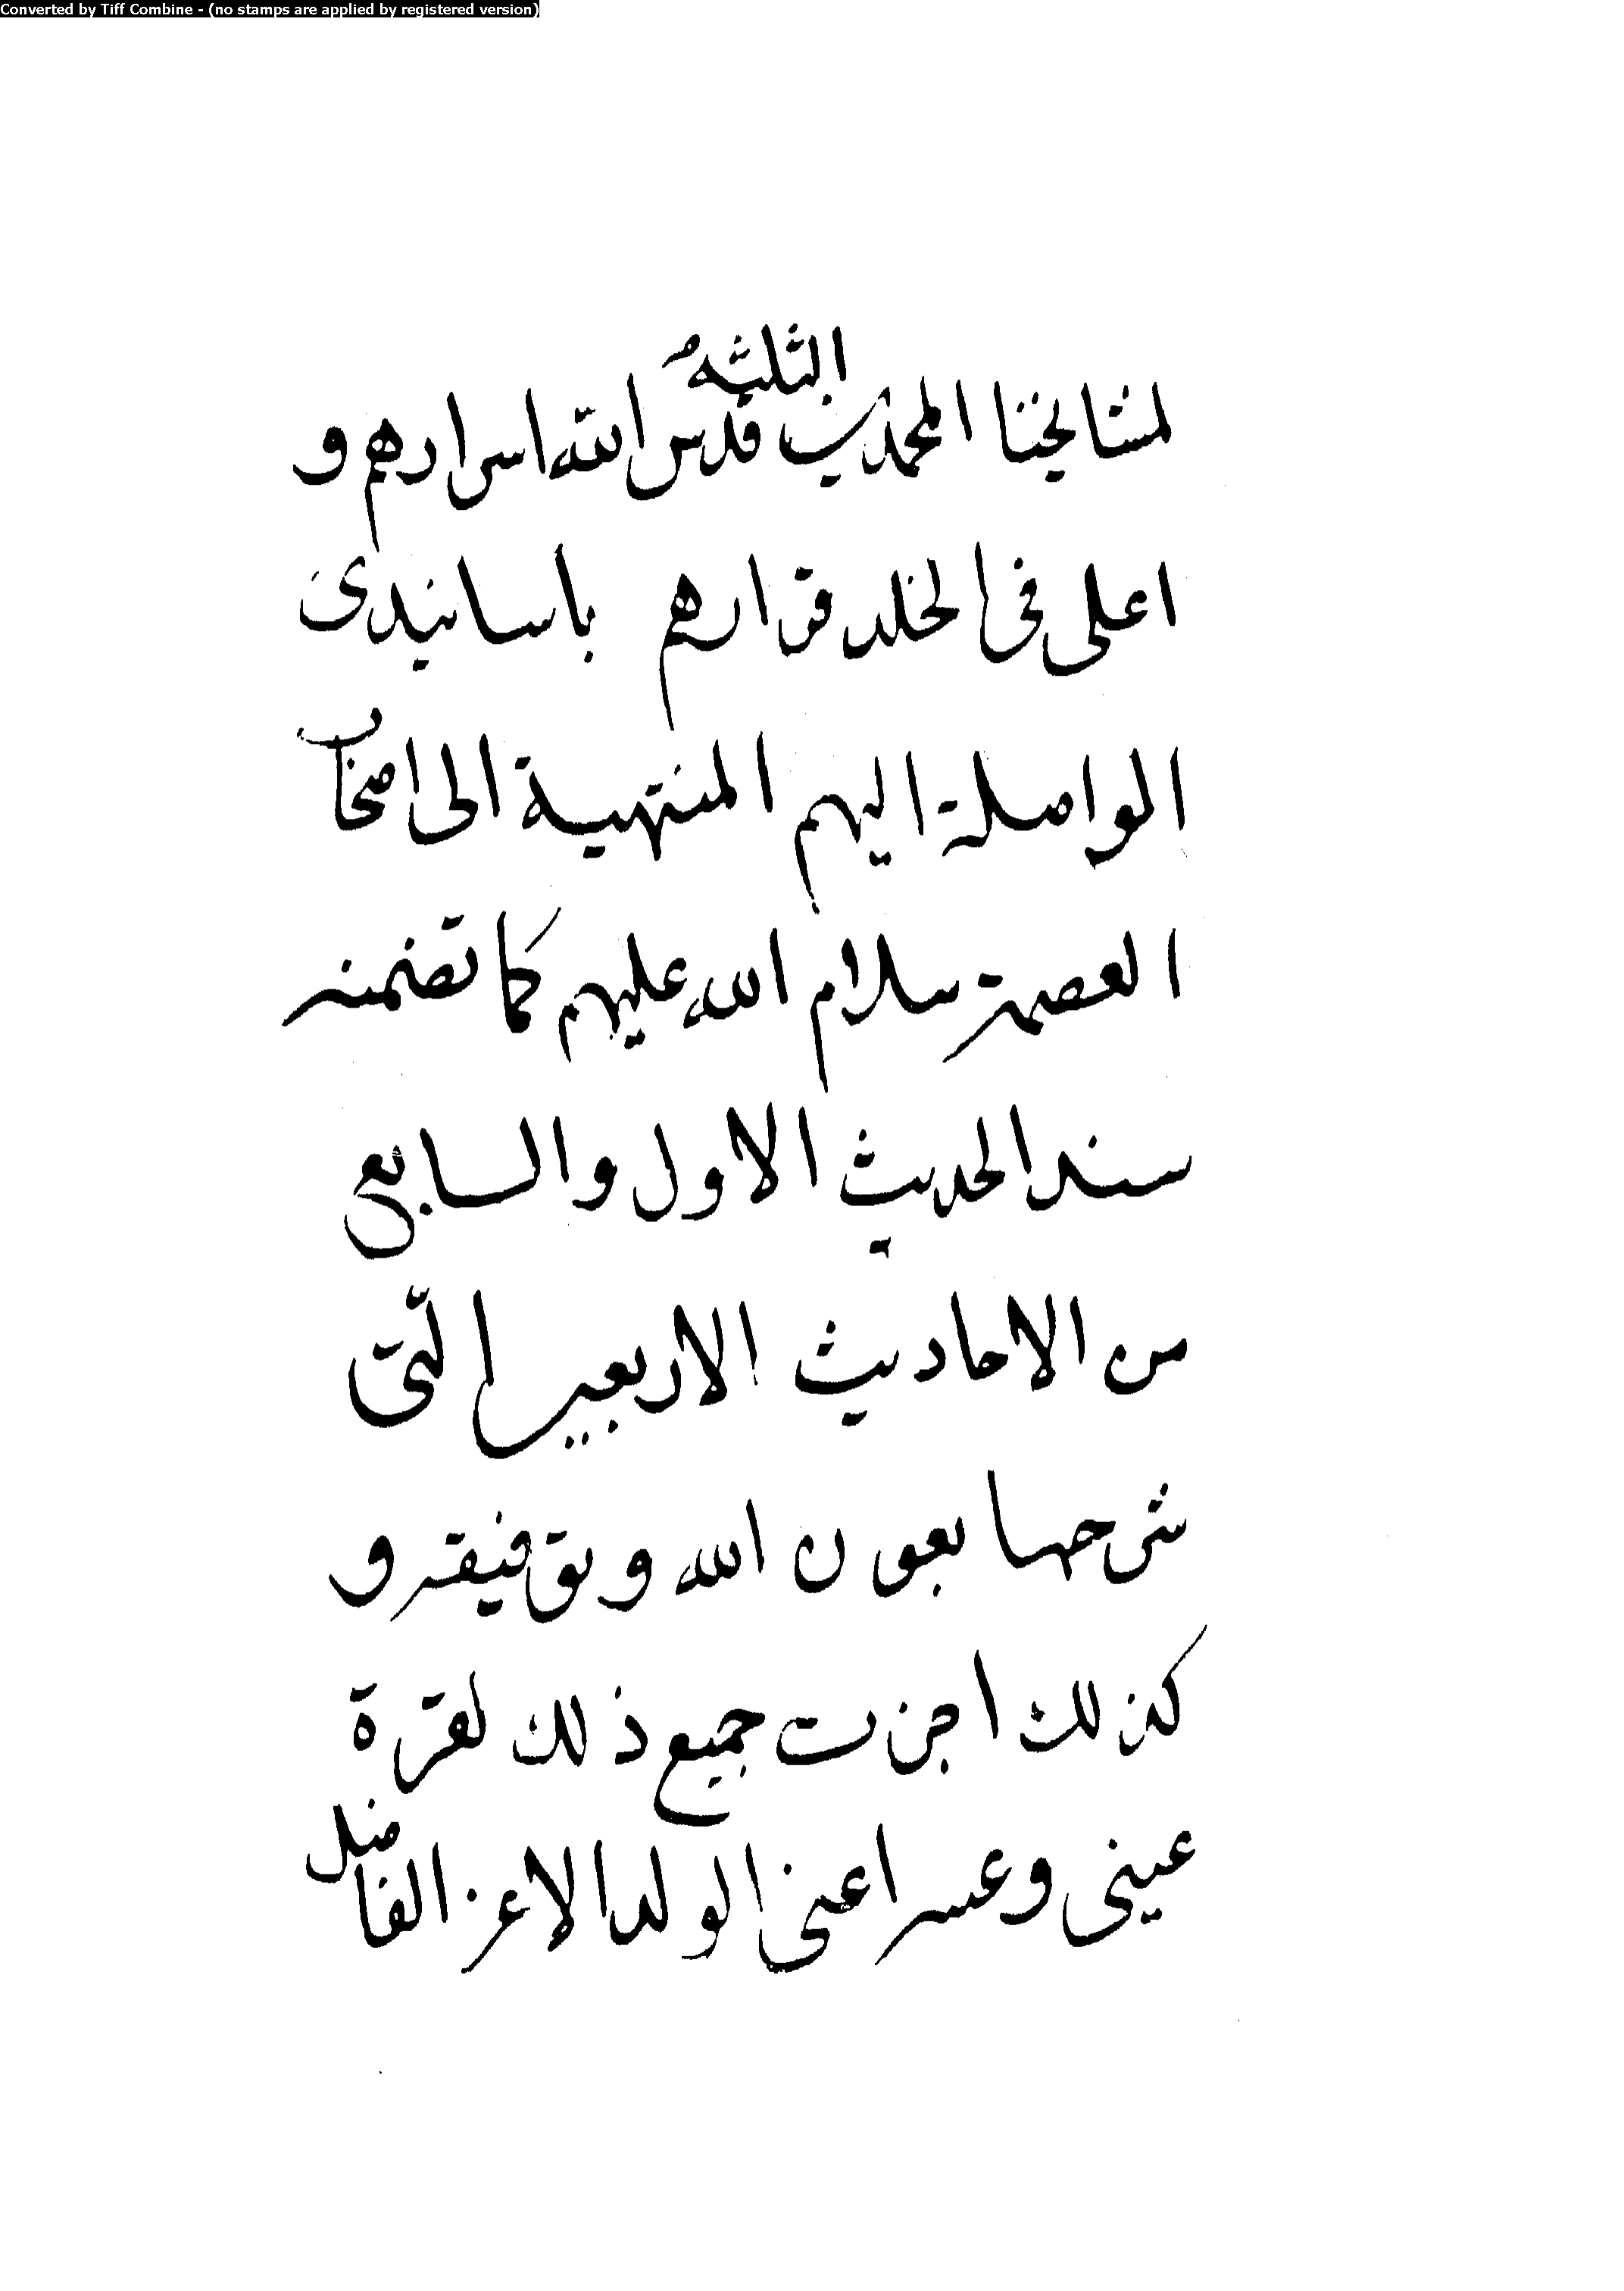 Converted by Tiff Combine - (no stamps are applied by registered version)
الثلثة
لمشایخنا المحمدین قدس الله اسرارهم و
اعلی فی الخلد قرارهم باسانیدی
الواصلة الیهم المنتهیة الی اصحاب
العصمة سلام الله علیهم کما تضمنه
سند الحدیث الاول والسابع
من الاحادیث الاربعین الّتی
شرحها بعون الله وتوفیقه و
کذلك اجزت جمیع ذلك لقرة
عینی و اعنی الولد الاعز الفاضل